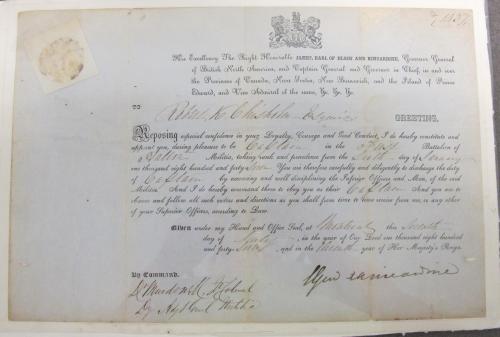 His Excellency The Right Honorable JAMES, EARL OF ELGIN AND KINCARDINE, Governor General
of British North America, and Captain General and Governor in Chief, in and over
the Provinces of Canada, Nova Scotia, New Brunswick, and the Island of Prince
Edward, and Vice Admiral of the same, &c. &c. &c.
TO
Robert K Chisholm Esquire GREETING.
Reposing especial confidence in your Loyalty, Courage and Good Conduct, I do hereby constitute and
appoint you, during pleasure to be Captain in the First Battalion of
Halton Militia, taking rank and precedence from the day of
one thousand eight hundred and forty You are therefore carefully and diligently to discharge the duty
of Captain by exercising and well disciplining the Inferior Officers and Men, of the said
Militia. And I do hereby command them to obey you as their Captain And you are to
observe and follow all such orders and directions as you shall from time to time receive from me, or any other
of your Superior Officers, according to Law.
Given under my Hand and Office Seal, at Montreal this
day of July in the year of Our Lord one thousand eight hundred
and forty and in the year of Her Majesty's Reign.
By Command.
Elgin & Kincardine
Lt Colonel
Dy Adjt Genl Militia